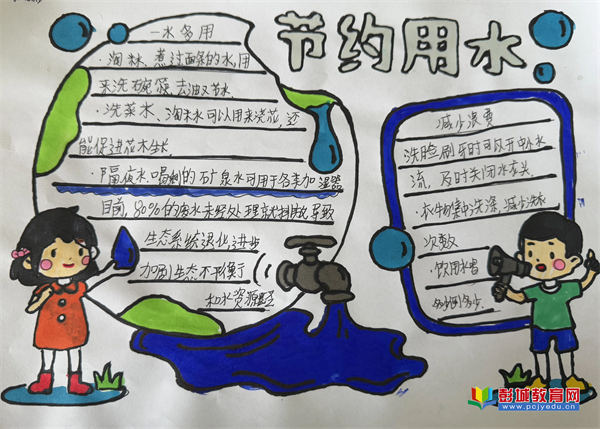 节约用水
一水多用
·淘米、煮过面条的水,用
来洗碗筷,去油又节水
·洗菜水、淘米水可以用来浇花,还
能促进花木生长
·隔夜水、喝剩的矿泉水可用于各类加湿器
目前,80%的废水未经处理就排放,导致
生态系统退化,进步
加剧生态不平衡
和水资源
减少浪费
洗脸刷牙时可以开中小水
流,及时关闭水龙头
·衣物集中洗涤,减少洗衣
次数
·饮用水
彭城教育网
www.pcjyedu.cn